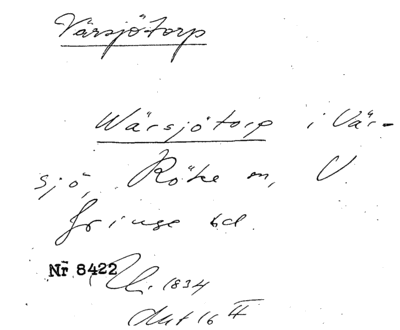 Värsjötorp
Wärsjötorp i Vär-
sjö, Röke sn, V.
Göinge hd.
Nr 8422
1834
Akt 16 II